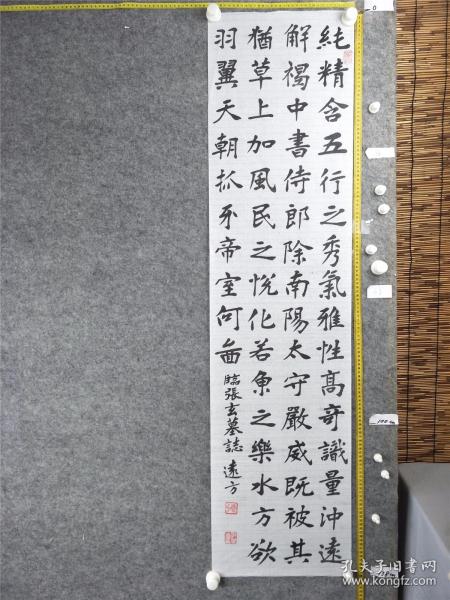 純精含五行之秀氣雅性髙奇識量沖遠
解褐中書侍郎除南陽太守嚴威既被其
猶草上加風民之悅化若魚之樂水方欲
羽翼天朝抓牙帝室何啚
臨張玄墓誌 遠方
孔夫子旧书网
https://book.kongfz.com/